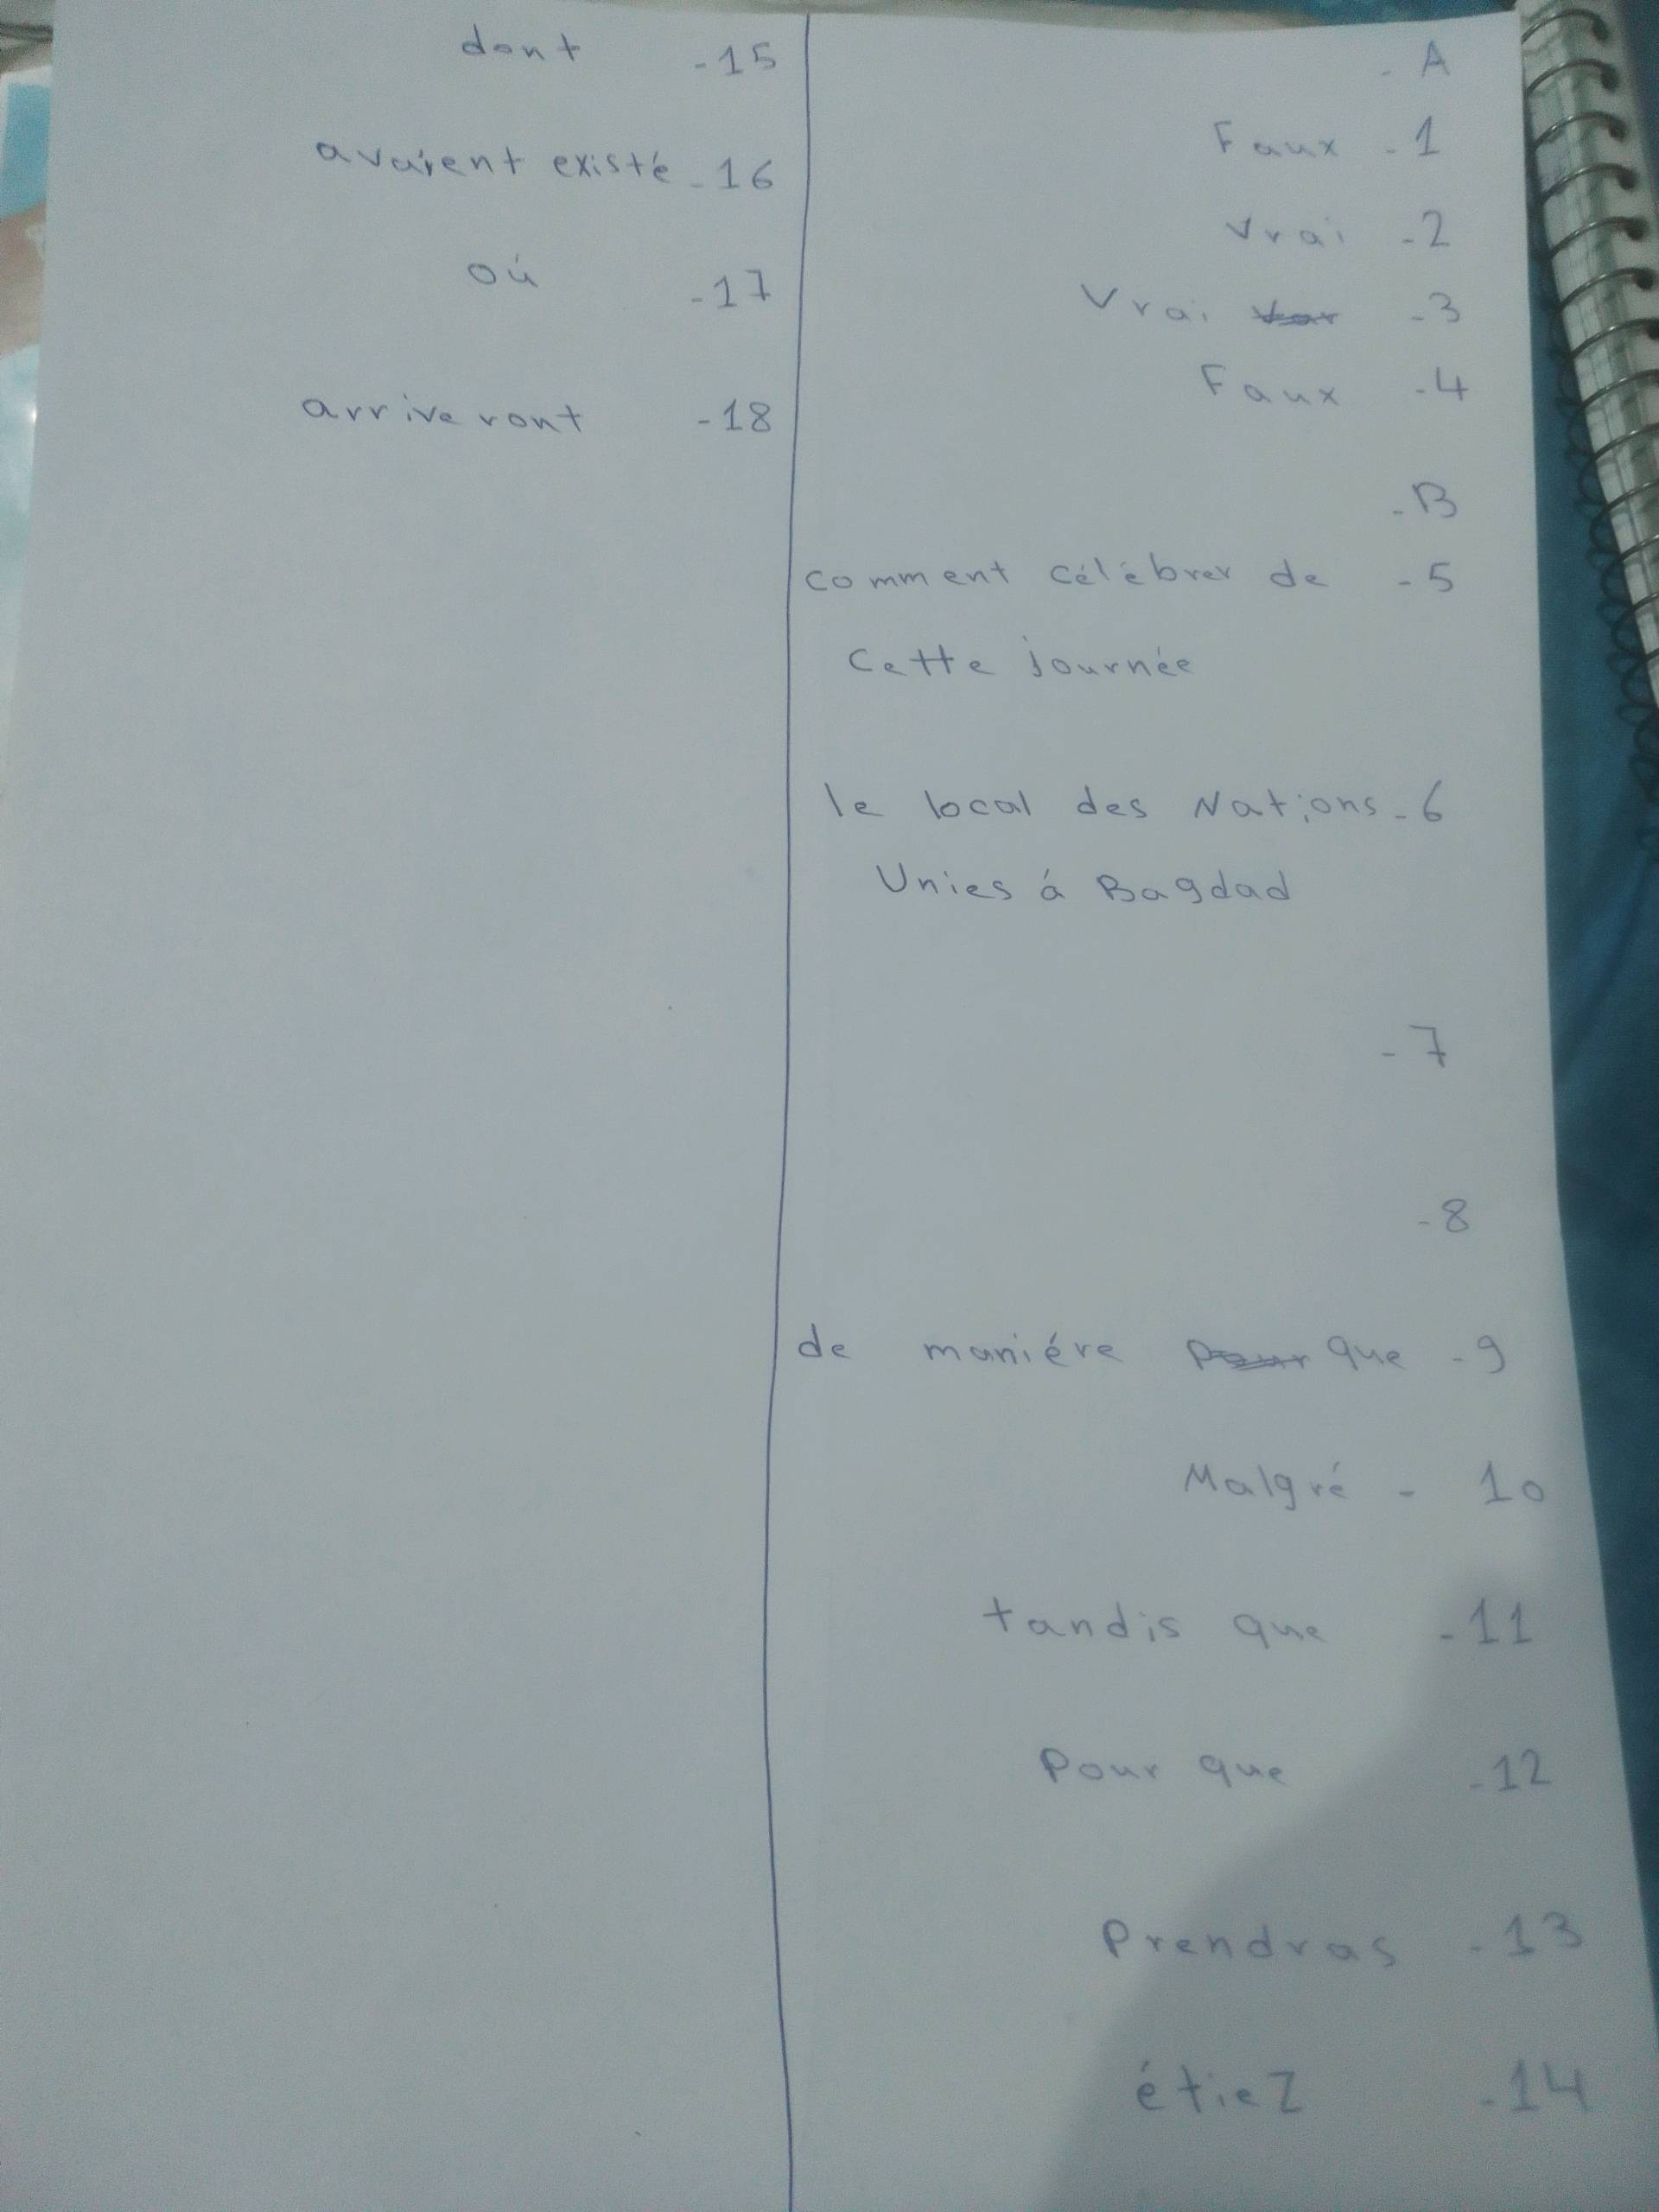 - A
Faux - 1
Vrai - 2
Vrai - 3
Faux - 4
- B
comment célébrer de - 5
Cette journée
le local des Nations - 6
Unies á Bagdad
- 7
- 8
de maniére que - 9
Malgré - 10
tandis que - 11
Pour que - 12
Prendras - 13
étiez - 14
dont - 15
avaient existé - 16
oú - 17
arriveront - 18